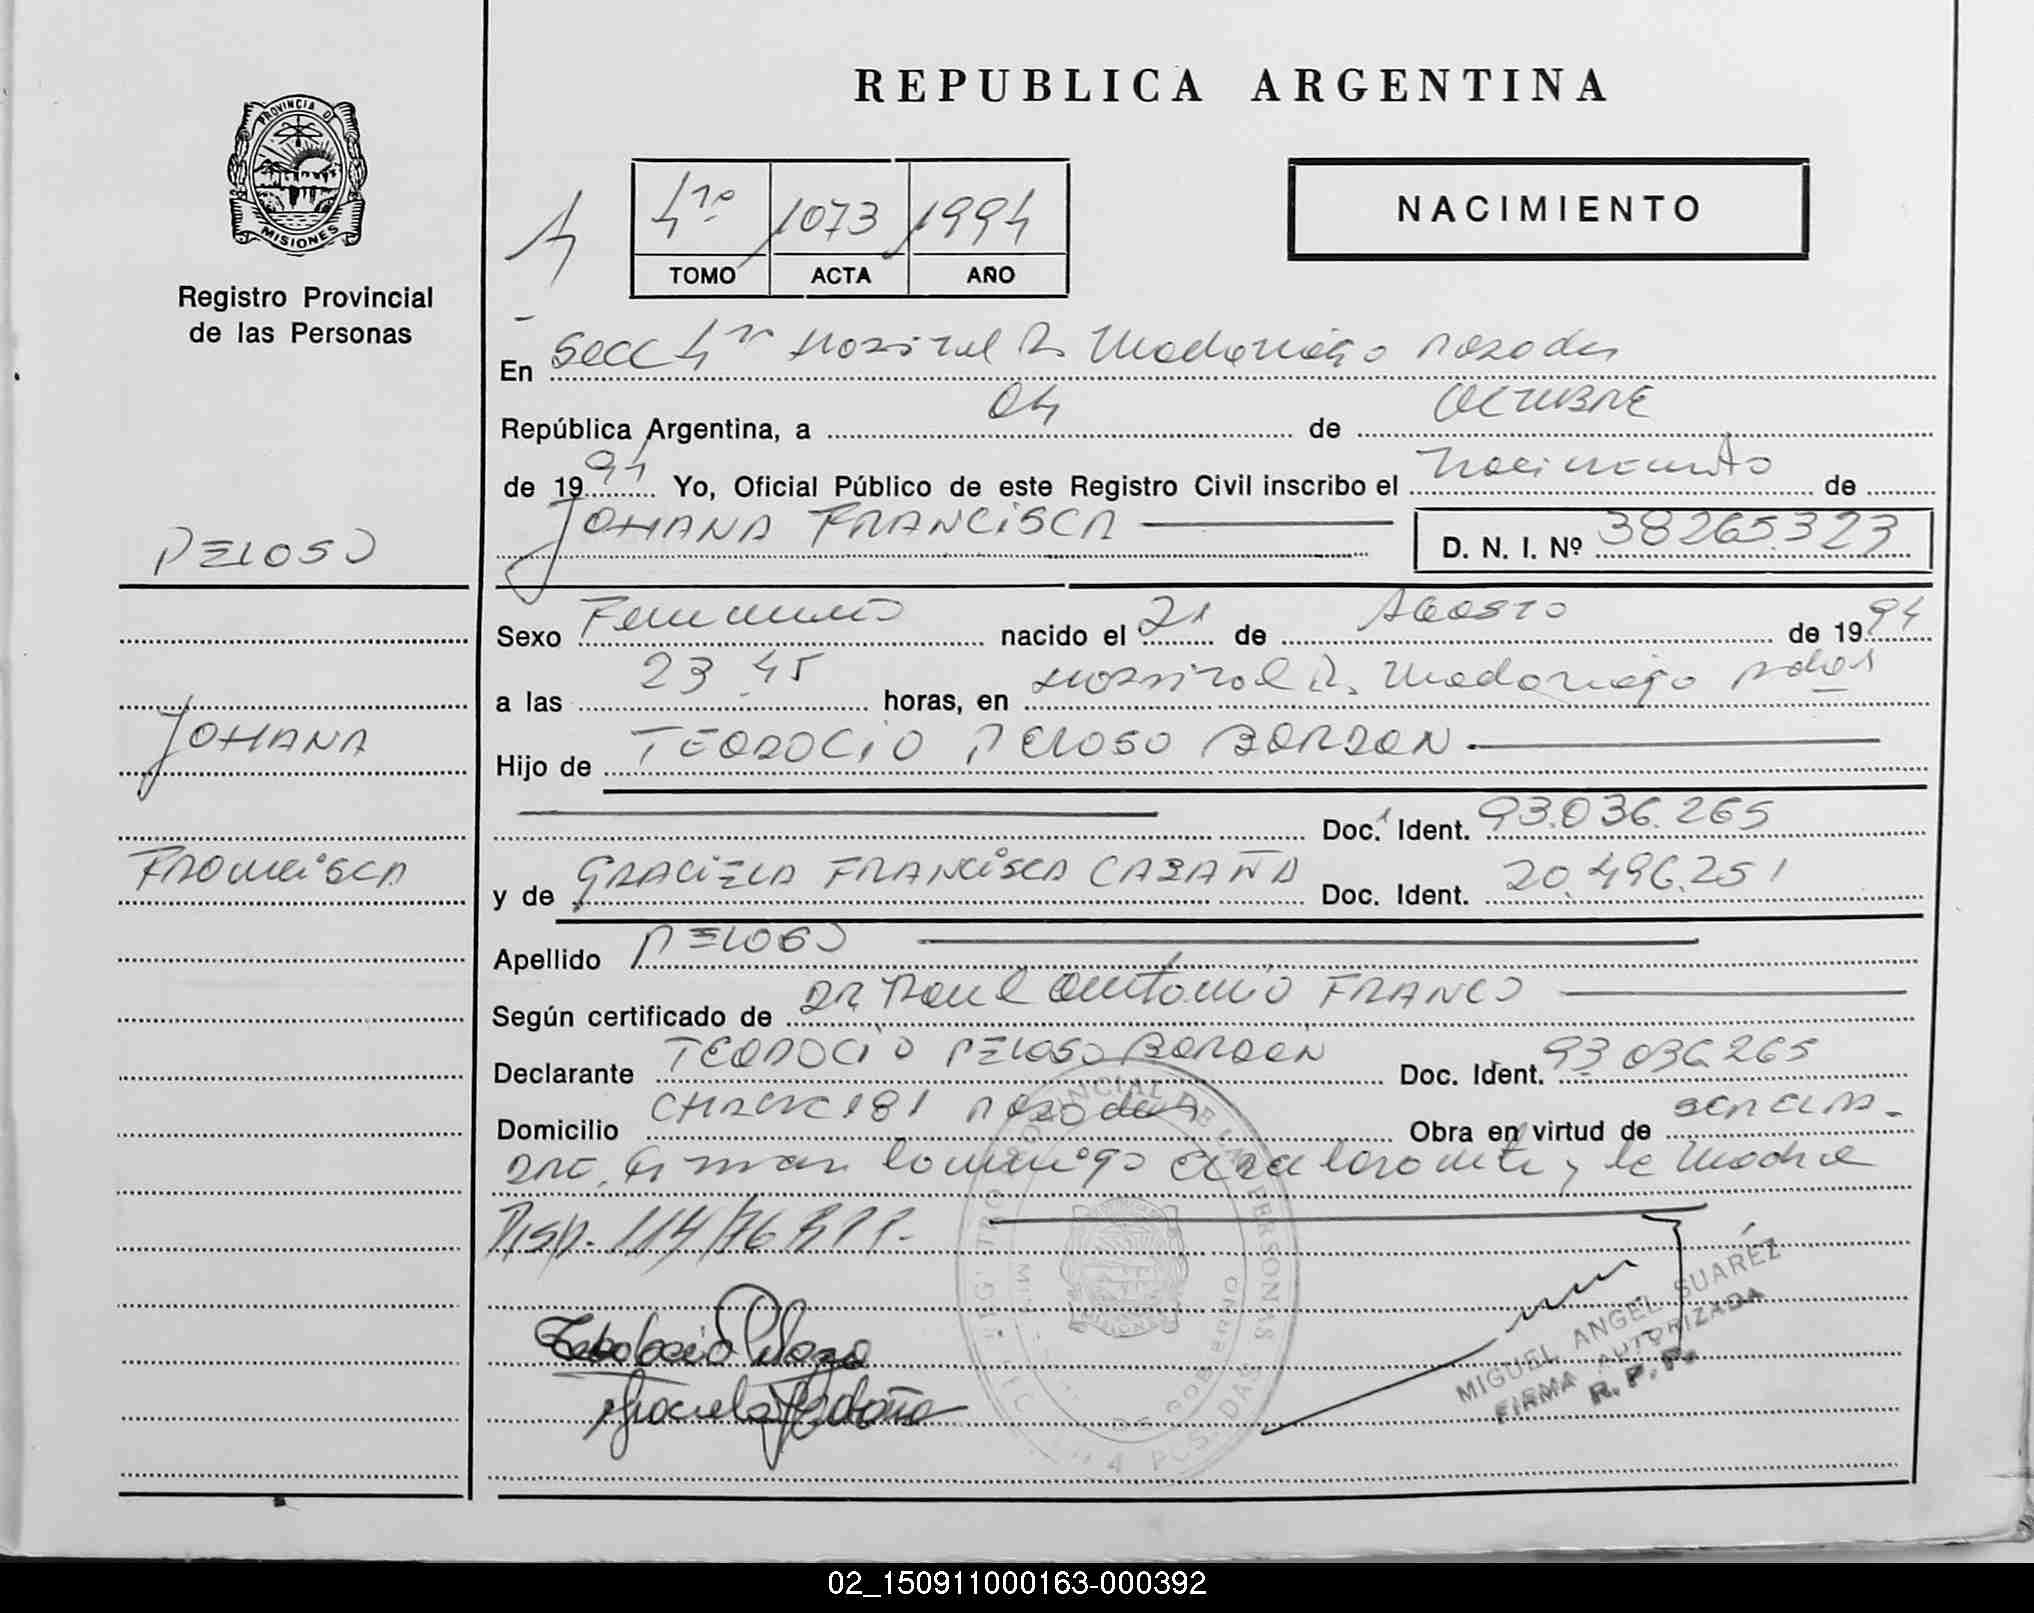 REPUBLICA ARGENTINA
PROVINCIA DE
MISIONES
Registro Provincial
de las Personas
NACIMIENTO
4 4to 1073 1994
TOMO ACTA AÑO
En Secc 4ta Hospital R. Madariaga Posadas
República Argentina, a 04 de OCTUBRE
de 1994 Yo, Oficial Público de este Registro Civil inscribo el Nacimiento de
JOHANA FRANCISCA D. N. I. Nº 38265.323
PELOSO
JOHANA
FRANCISCA
Sexo Femenino nacido el 21 de Agosto de 1994
a las 23.45 horas, en Hospital R. Madariaga Pdas
Hijo de TEODOCIO PELOSO BORDON
Doc. Ident. 93.036.265
y de GRACIELA FRANCISCA CABAÑA Doc. Ident. 20.496.251
Apellido PELOSO
Según certificado de DR Raul Antonio FRANCO
Declarante TEODOCIO PELOSO BORDON Doc. Ident. 93.036.265
Domicilio CHACRC 181 Posadas Obra en virtud de SER EL PA-
DRE. Firman conmigo el declarante y la Madre
Disp. 114/76 R.P.P.-
MIGUEL ANGEL SUAREZ
FIRMA AUTORIZADA
R. P. P.
02_150911000163-000392